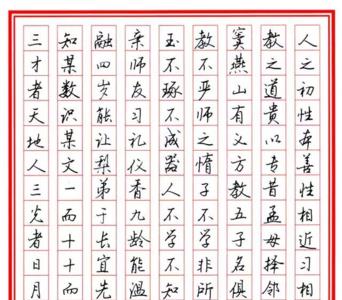 人之初性本善性相近习相
教之道貴以专昔孟母择邻
窦燕山有义方教五子名俱
教不严师之惰子不学非所
玉不琢不成器人不学不知
亲师友习礼仪香九龄能温
融四岁能让梨弟于长宜先
知某数识某文一而十十而
三才者天地人三光者日月